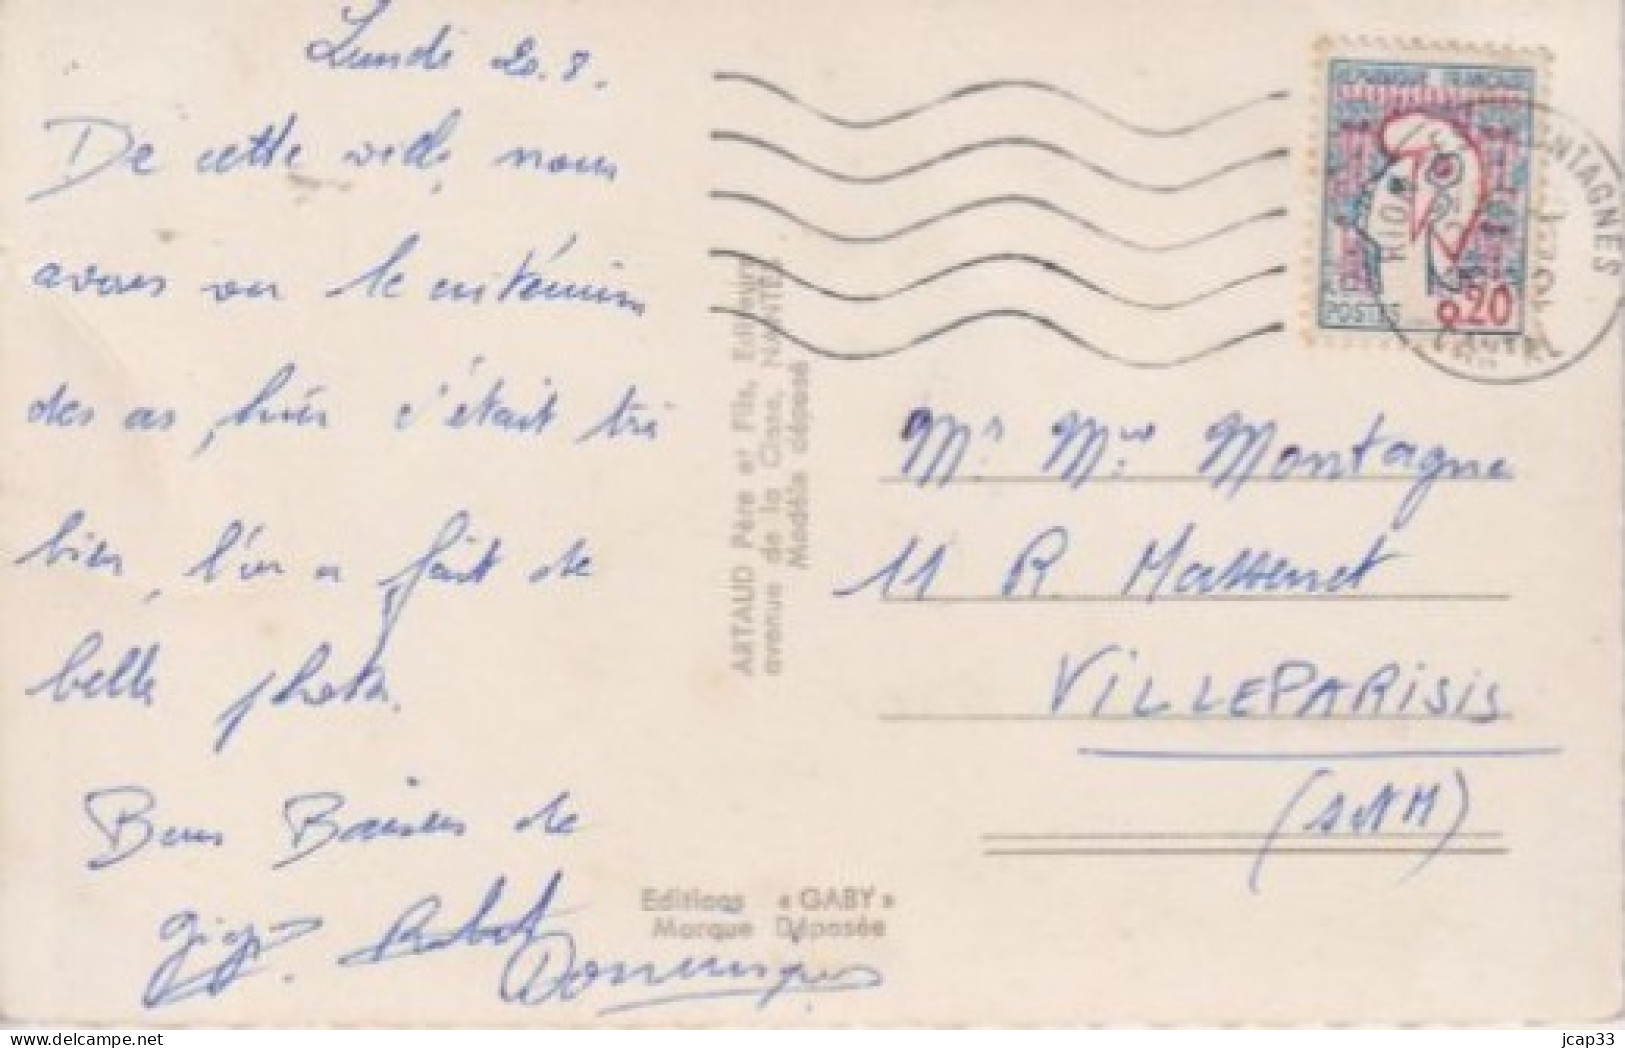 Lundi 2.8.
De cette ville, nous
avons vu le critérium
des as, hier c'était très
bien, l'on a fait de
belle photo.
Bons Baisers de
Gigi. Robert
Dominique
ARTAUD Père et Fils, Editeurs
avenue de la Close, NANTES
Modèle déposé
Editions « GABY »
Marque Déposée
REPUBLIQUE FRANCAISE
POSTES 0,20
RIOM MONTAGNES
CANTAL
Mr Mme Montagne
11 R. Massenet
VILLEPARISIS
(S&M)
jcap33